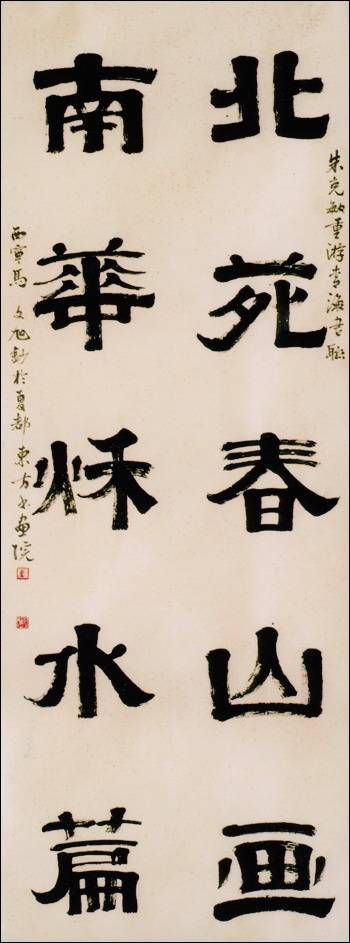 朱克敏重游青海书聯
北苑春山画
南華秌水篇
西寧馬文旭鈔於夏都東方书畫院